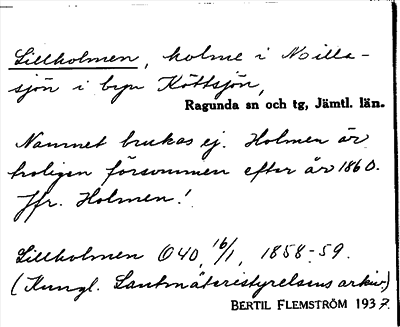 Lillholmen, holme i Noilla-
sjön i byn Köttsjön,
Ragunda sn och tg, Jämtl. län.
Namnet brukas ej. Holmen är
troligen försvunnen efter år 1860.
Jfr. Holmen!
Lillholmen O40, 16/1, 1858-59.
(Kungl. Lantmäteristyrelsens arkiv.)
BERTIL FLEMSTRÖM 1937.